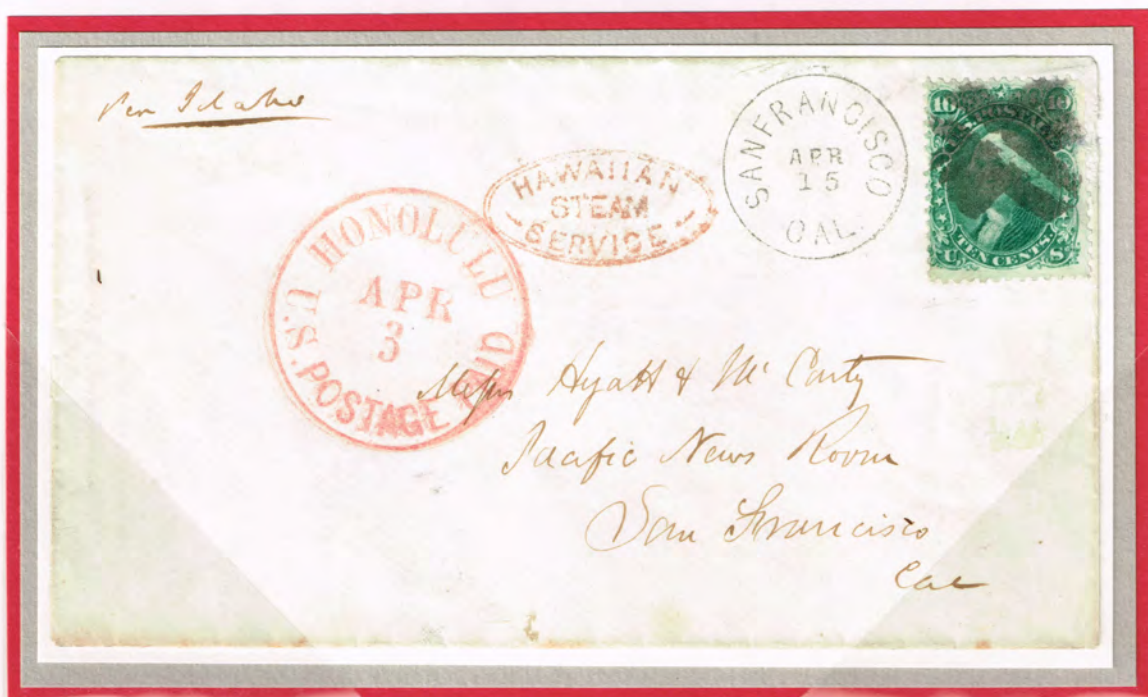 Per Idaho
HAWAIIAN
STEAM
SERVICE
SAN FRANCISCO
APR
15
CAL.
10 10
U TEN CENTS. S
HONOLULU
APR
3
U.S. POSTAGE PAID
Messrs Hyatt & McCarty
Pacific News Room
San Francisco
Cal